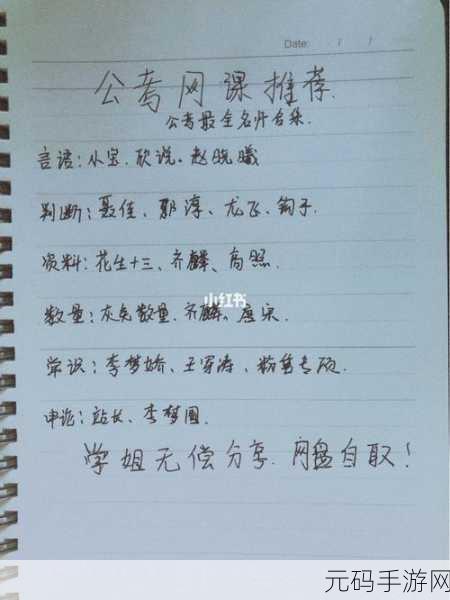 Date: / /
公考网课推荐.
公考最全名师合集.
言语:小宝.欣说.赵晓曦
判断:聂佳、郭淳、龙飞、钩子.
资料:花生十三、齐麟、高照.
小红书
数量:灰兔数量.齐麟、唐宋.
常识:李梦娇、王军涛、粉笔专项.
申论:站长、李梦圆.
学姐无偿分享.网盘自取!
元码手游网